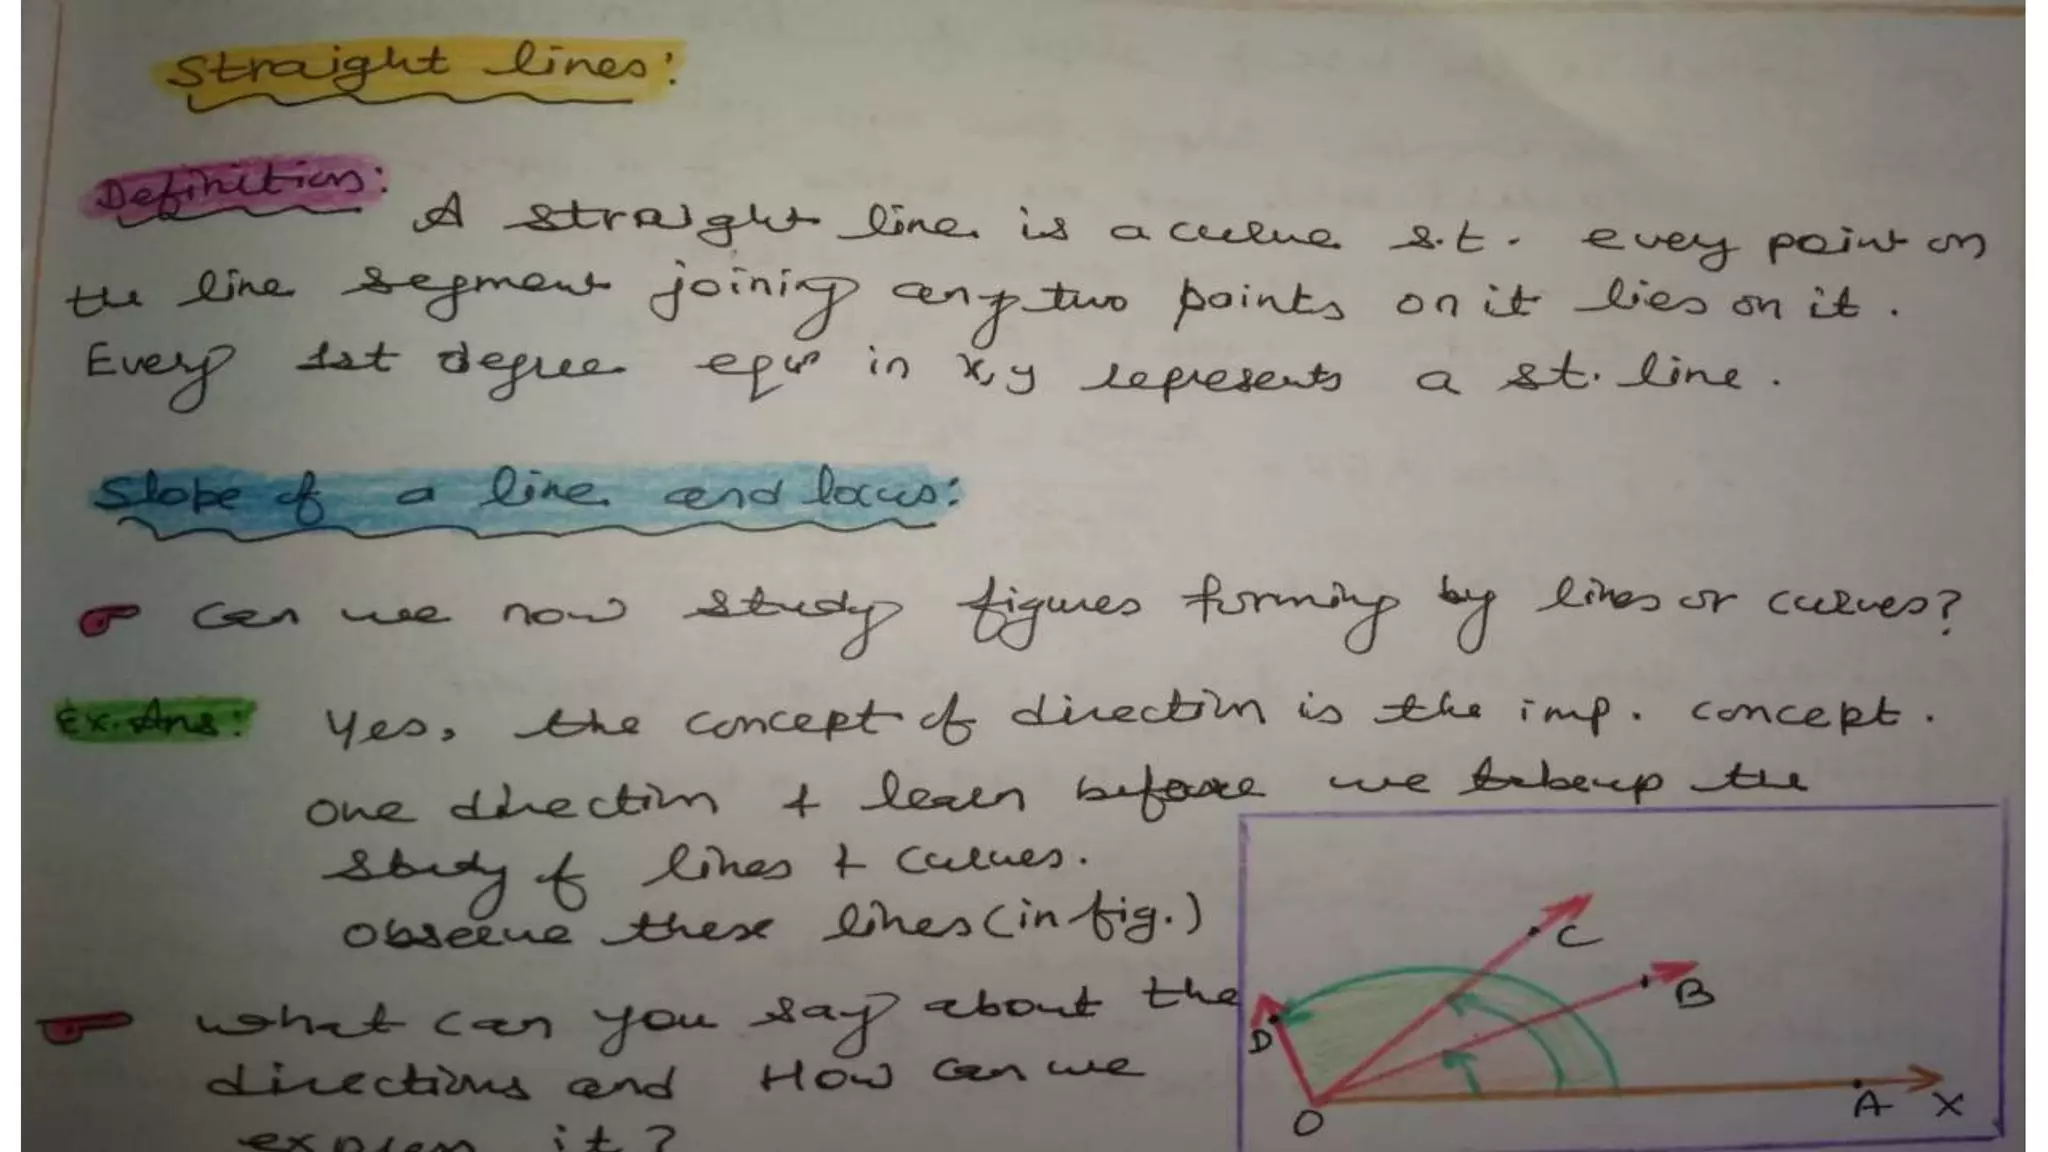 Straight lines:
Definition: A straight line is a curve s.t. every point on
the line segment joining any two points on it lies on it.
Every 1st degree eqn in x, y represents a st. line.
Slope of a line and locus:
Can we now study figures forming by lines or curves?
Ex. Ans: Yes, the concept of direction is the imp. concept.
one direction & learn before we takeup the
study of lines & curves.
observe these lines (in fig.)
What can you say about the
directions and How can we
express it?
C
B
D
O
A X